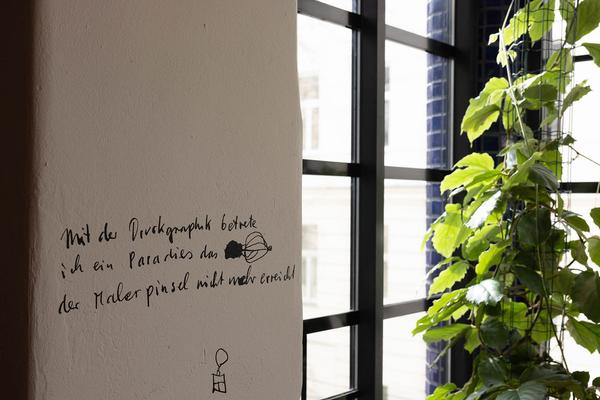 Mit der Druckgraphik betrete
ich ein Paradies das
der Malerpinsel nicht mehr erreicht